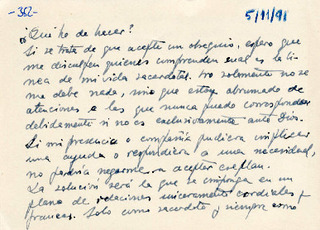 -362-
5/11/91
¿Qué he de hacer?
Si se trata de que acepte un obsequio, espero que
me disculpen quienes comprenden cual es la lí-
nea de mi vida sacerdotal. No solamente no se
me debe nada, sino que estoy abrumado de
atenciones a las que nunca puedo corresponder
debidamente si no es exclusivamente ante Dios.
Si mi presencia o compañía pudiera implicar
una ayuda o respondiera a una necesidad,
no podría negarme a aceptar
La solución será la que se en un
plano de relaciones sinceramente cordiales y
francas. Solo como sacerdote y siempre como